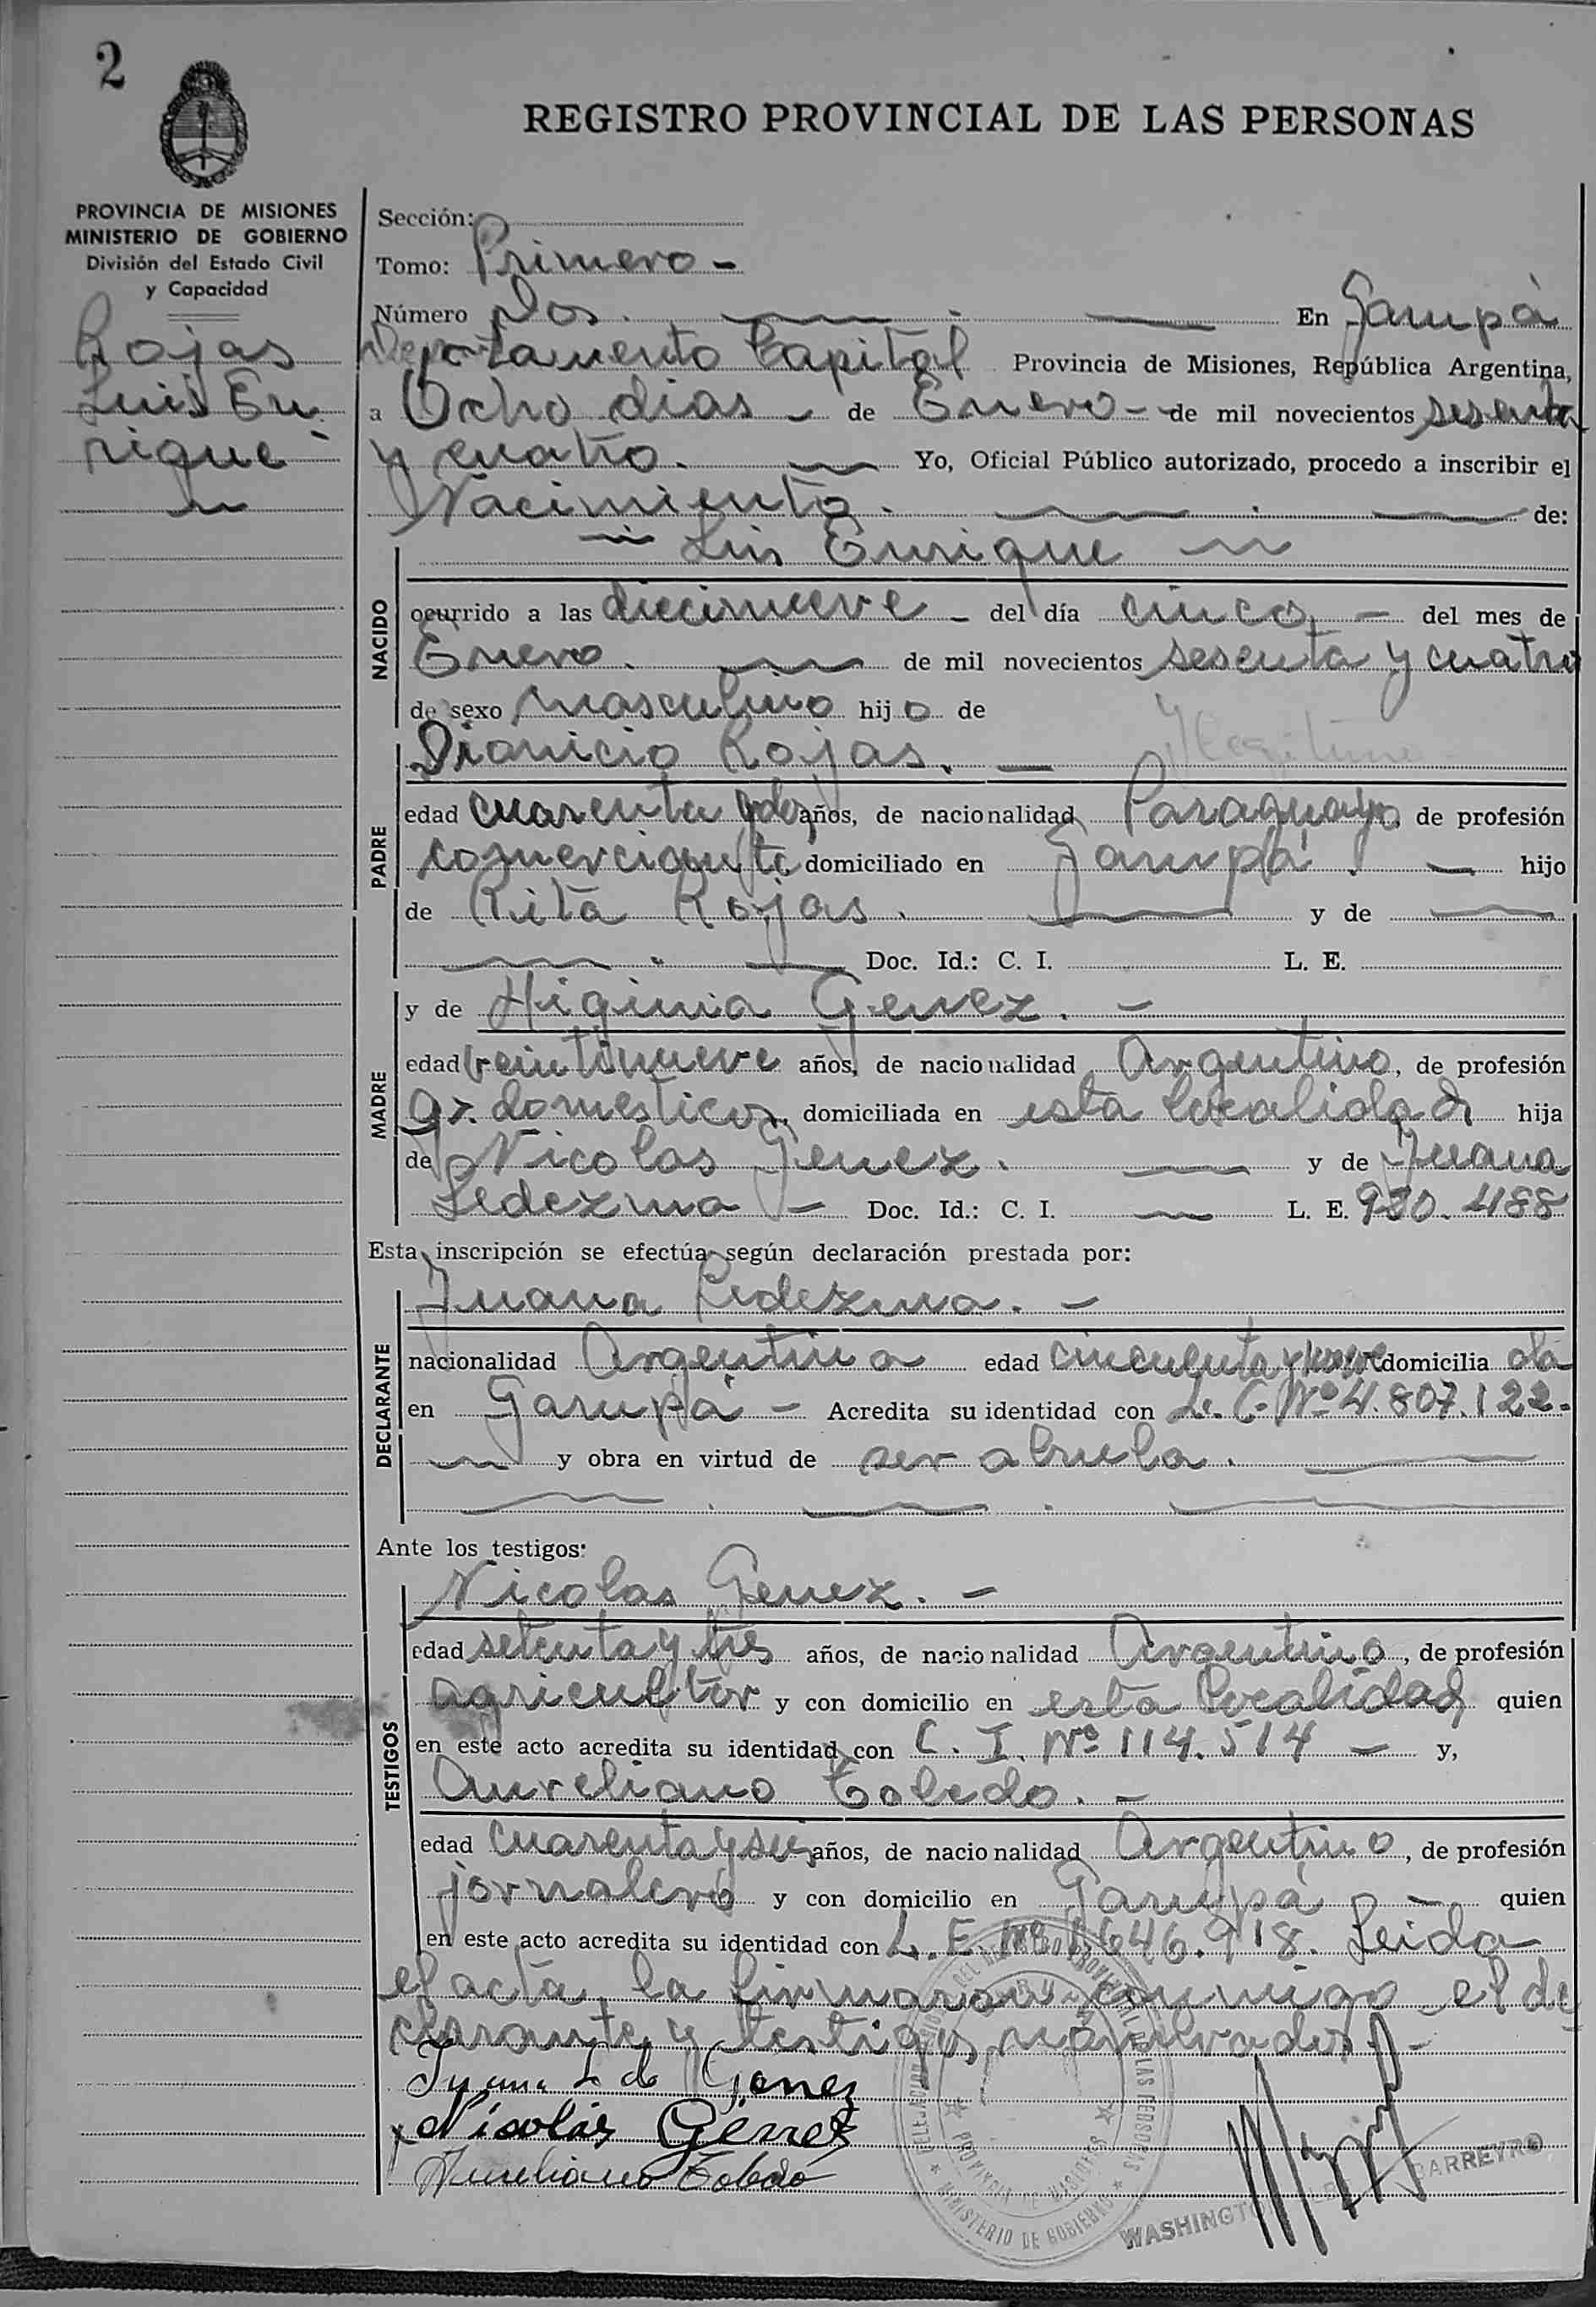 2
REGISTRO PROVINCIAL DE LAS PERSONAS
PROVINCIA DE MISIONES
MINISTERIO DE GOBIERNO
División del Estado Civil
y Capacidad
Rojas
Luis En
rique
Sección:
Tomo: Primero -
Número Dos. En Garupá
Departamento Capital Provincia de Misiones, República Argentina,
a Ocho dias - de Enero - de mil novecientos sesenta
y cuatro. Yo, Oficial Público autorizado, procedo a inscribir el
Nacimiento. de:
Luis Enrique
NACIDO
ocurrido a las diecinueve - del día cinco - del mes de
Enero. de mil novecientos sesenta y cuatro
de sexo masculino hijo de
Dionicio Rojas. -
PADRE
edad cuarenta y dos años, de nacionalidad Paraguayo, de profesión
comerciante domiciliado en Garupá. - hijo
de Rita Rojas. y de
Doc. Id.: C. I. L. E.
y de Higinia Genez. -
MADRE
edad veintinueve años, de nacionalidad Argentino, de profesión
qs. domesticos, domiciliada en esta localidad hija
de Nicolas Genez. y de Juana
Ledezma - Doc. Id.: C. I. L. E. 930.488
Esta inscripción se efectúa según declaración prestada por:
Juana Ledezma. -
DECLARANTE
nacionalidad Argentina edad cincuenta y nueve domicilia da
en Garupá - Acredita su identidad con L. C. Nº 4.807.122.
y obra en virtud de ser abuela.
Ante los testigos:
Nicolas Genez. -
TESTIGOS
edad setenta y tres años, de nacionalidad Argentino, de profesión
agricultor y con domicilio en esta localidad quien
en este acto acredita su identidad con C. I. Nº 114.514 - y,
Aureliano Toledo. -
edad cuarenta y seis años, de nacionalidad Argentino, de profesión
jornalero y con domicilio en Garupá - quien
en este acto acredita su identidad con L. E. Nº 1646.918. Leida
el acta, la firmaron conmigo el de
clarante y testigos
Juana L de Genez
Nicolás Génez
Aureliano Toledo
PROVINCIA DE MISIONES
MINISTERIO DE GOBIERNO
WASHINGTON BARREYRO